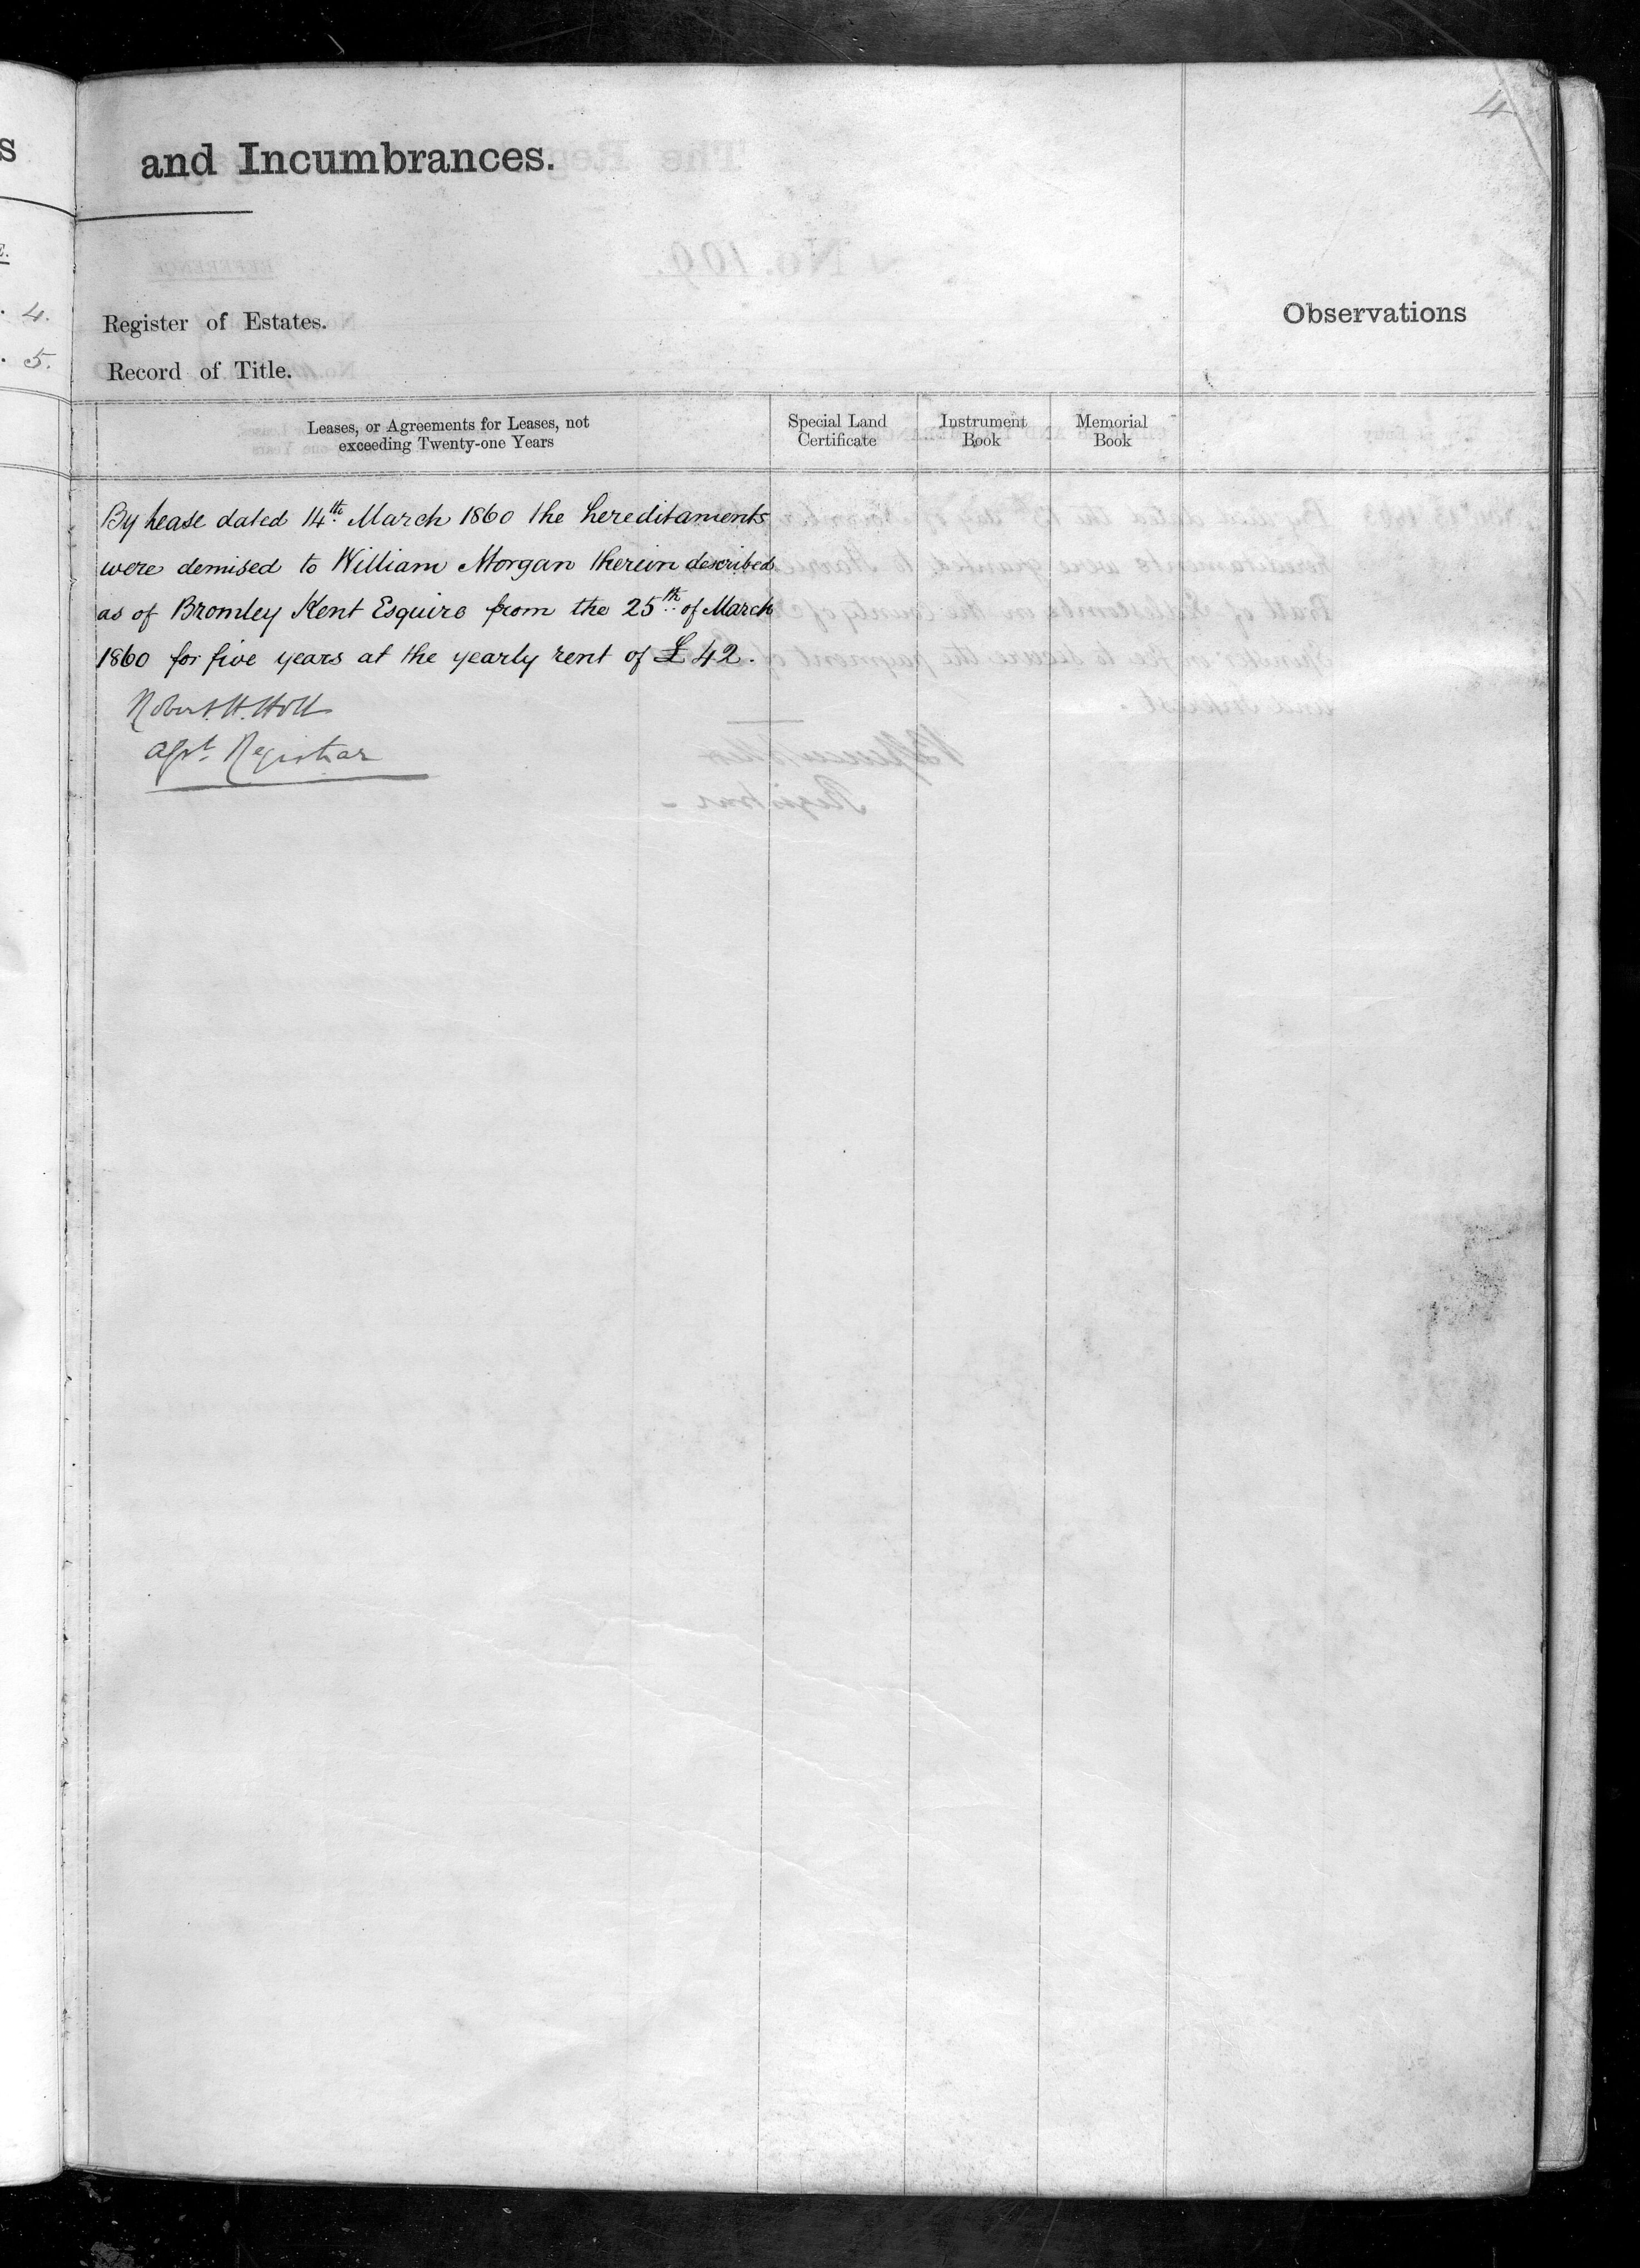 4
and Incumbrances.
Register of Estates.
Record of Title.
Observations
4.
5.
Leases, or Agreements for Leases, not
exceeding Twenty-one Years
Special Land
Certificate
Instrument
Book
Memorial
Book
By Lease dated 14th March 1860 the hereditaments
were demised to William Morgan therein described
as of Bromley Kent Esquire from the 25th of March
1860 for five years at the yearly rent of £42.
Robert. H. Holt
Asst. Registrar